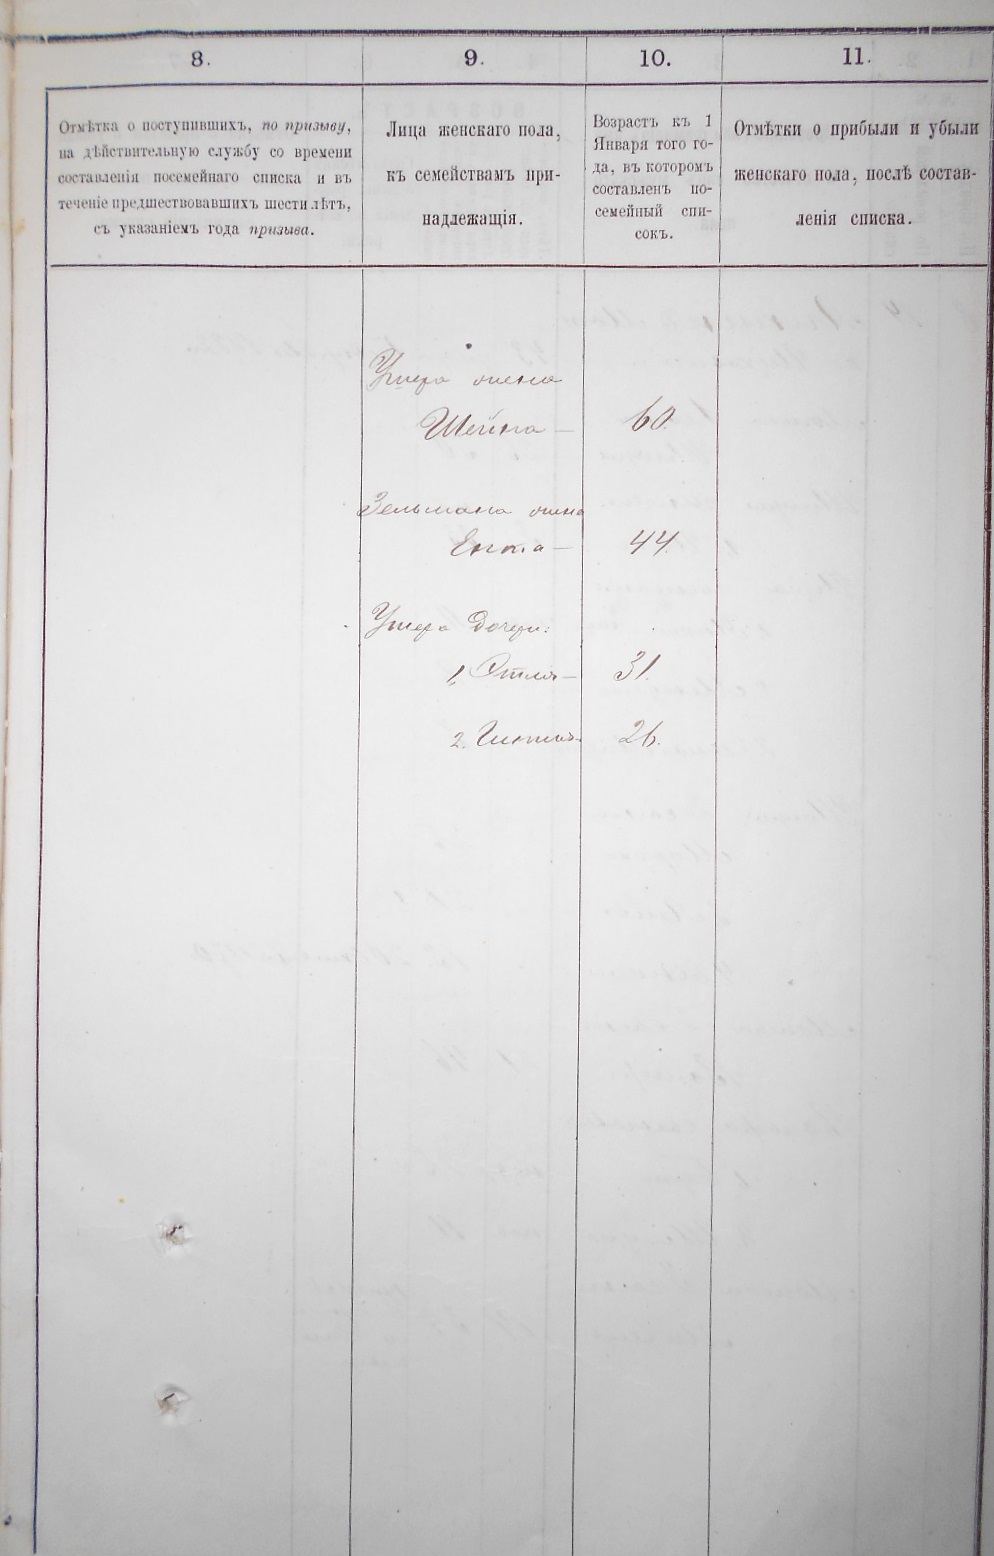 8.
9.
10.
11.
Отмѣтка о поступившихъ, по призыву,
на дѣйствительную службу со времени
составленія посемейнаго списка и въ
теченіе предшествовавшихъ шести лѣтъ,
съ указаніемъ года призыва.
Лица женскаго пола,
къ семействамъ при-
надлежащія.
Возрастъ къ 1
Января того го-
да, въ которомъ
составленъ по-
семейный спи-
сокъ.
Отмѣтки о прибыли и убыли
женскаго пола, послѣ состав-
ленія списка.
жена
Шейна — 60.
Зельмана жена
Ента — 44.
дочери:
1, Этля — 31.
2. 26.